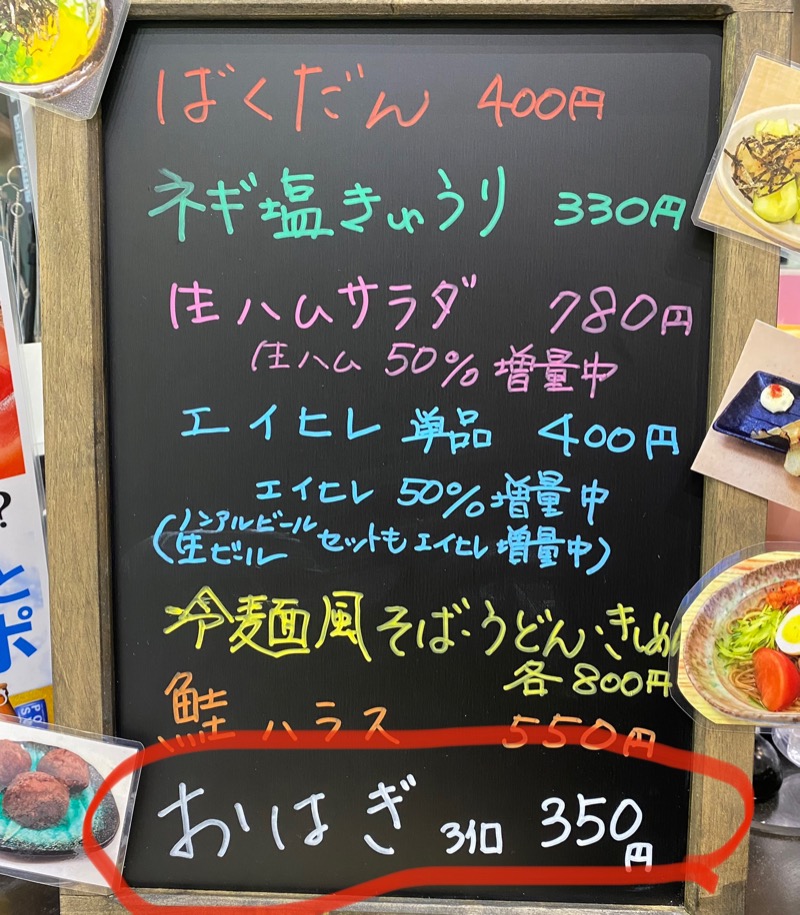 ばくだん 400円
ネギ塩きゅうり 330円
生ハムサラダ 780円
生ハム 50% 増量中
エイヒレ 単品 400円
エイヒレ 50% 増量中
(ノンアルビール
生ビール セットもエイヒレ増量中)
冷麺風そば・うどん・きしめん
各800円
鮭ハラス 550円
おはぎ 3個 350円
?
と
ポ